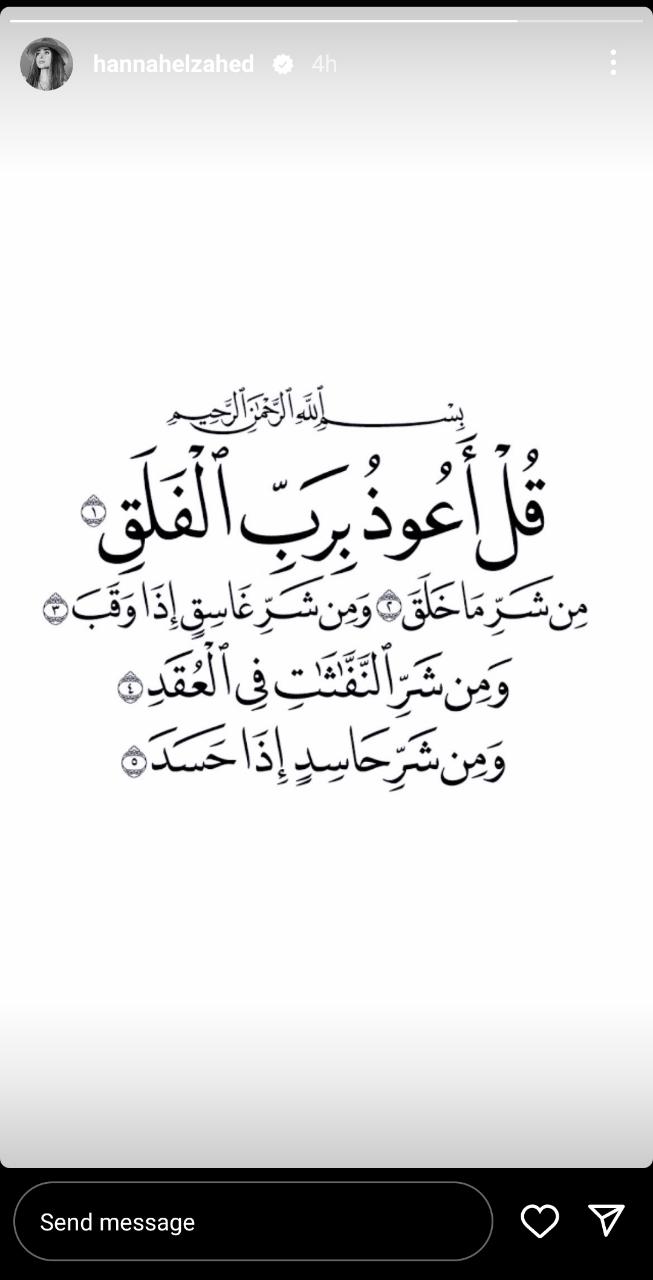 hannahelzahed 4h
بِسْمِ ٱللَّهِ ٱلرَّحْمَٰنِ ٱلرَّحِيمِ
قُلْ أَعُوذُ بِرَبِّ ٱلْفَلَقِ ١
مِن شَرِّ مَا خَلَقَ ٢ وَمِن شَرِّ غَاسِقٍ إِذَا وَقَبَ ٣
وَمِن شَرِّ ٱلنَّفَّٰثَٰتِ فِى ٱلْعُقَدِ ٤
وَمِن شَرِّ حَاسِدٍ إِذَا حَسَدَ ٥
Send message